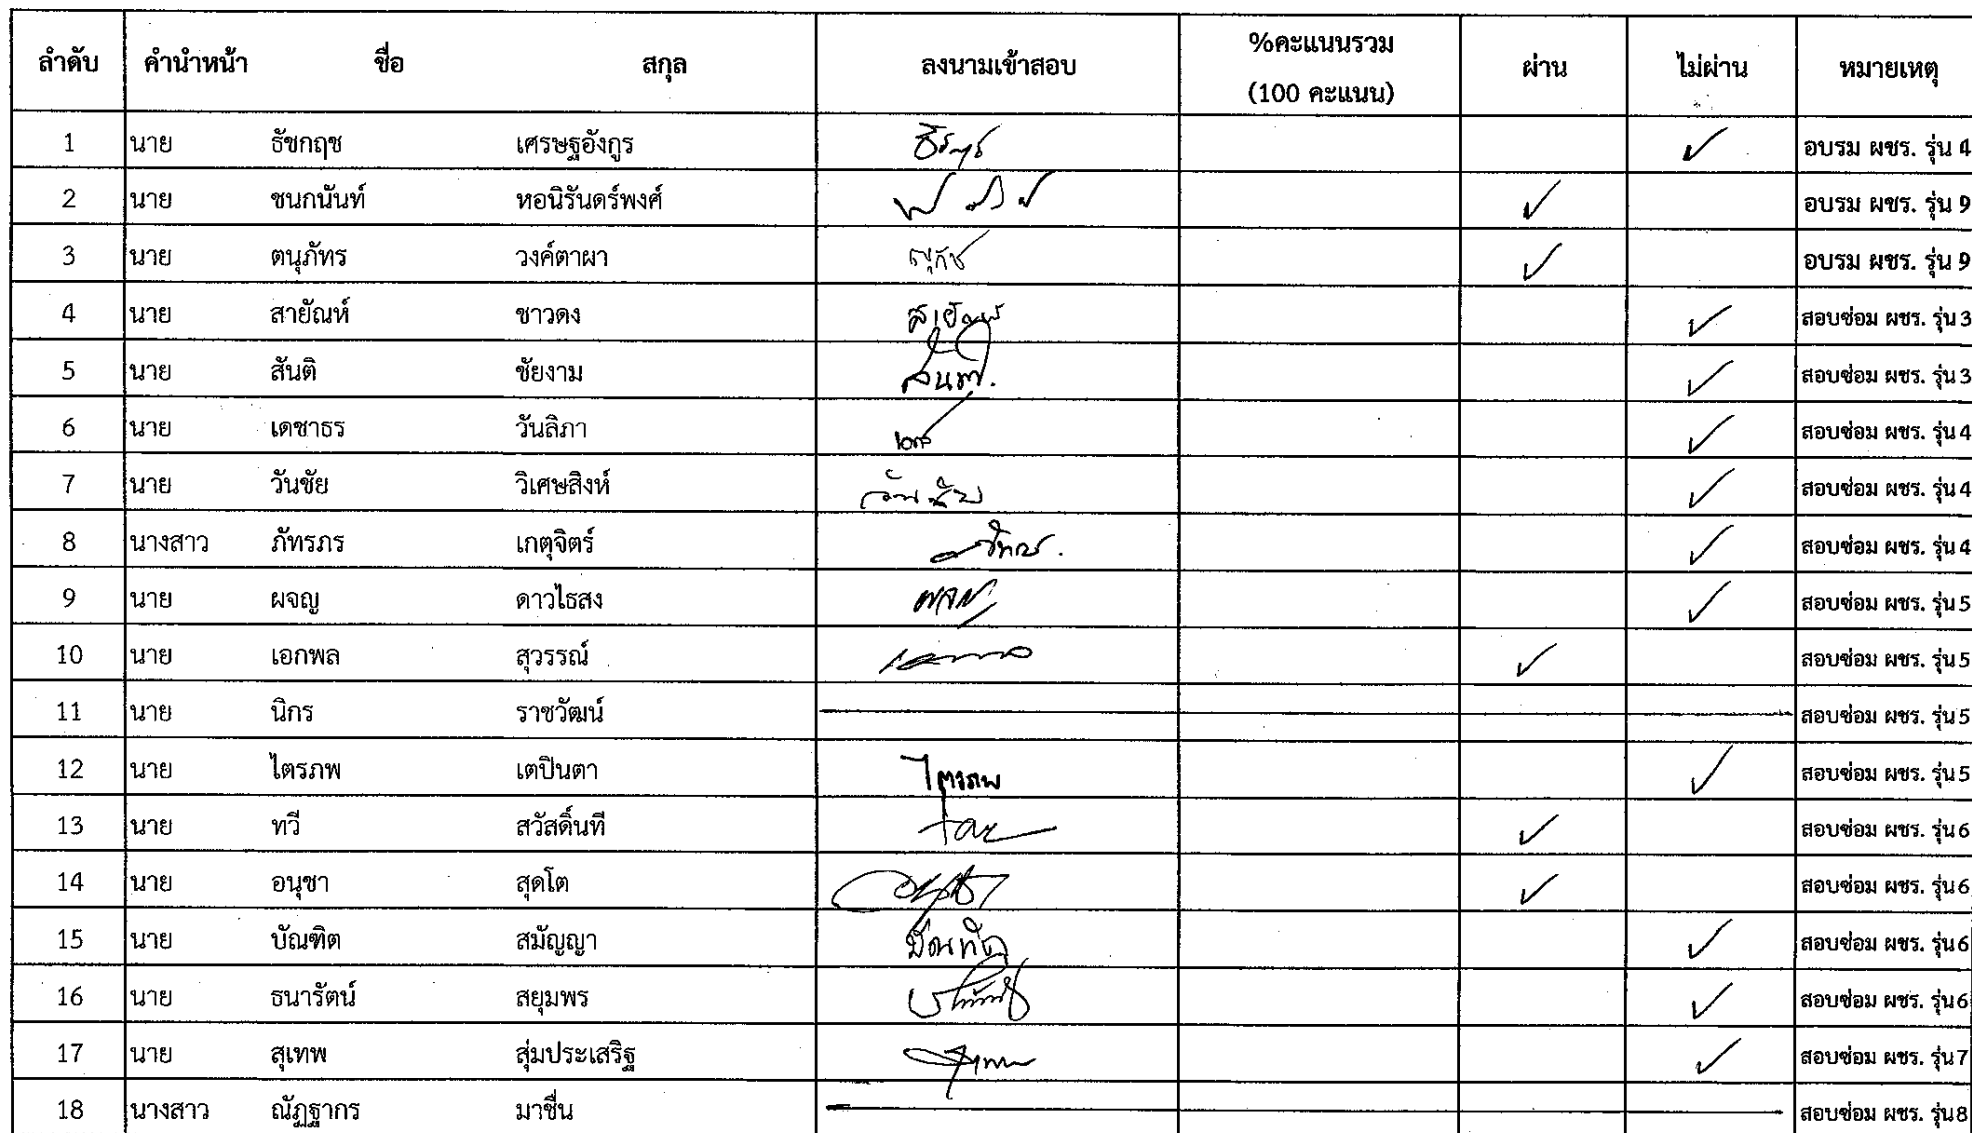 ลำดับ คำนำหน้า ชื่อ สกุล ลงนามเข้าสอบ %คะแนนรวม (100 คะแนน) ผ่าน ไม่ผ่าน หมายเหตุ
1 นาย ธัชกฤช เศรษฐอังกูร ✓ อบรม ผชร. รุ่น 4
2 นาย ชนกนันท์ หอนิรันดร์พงศ์ ✓ อบรม ผชร. รุ่น 9
3 นาย ตนุภัทร วงค์ตาผา ✓ อบรม ผชร. รุ่น 9
4 นาย สายัณห์ ชาวดง สายัณห์ ✓ สอบซ่อม ผชร. รุ่น 3
5 นาย สันติ ชัยงาม สันติ ✓ สอบซ่อม ผชร. รุ่น 3
6 นาย เดชาธร วันลิภา ✓ สอบซ่อม ผชร. รุ่น 4
7 นาย วันชัย วิเศษสิงห์ วันชัย ✓ สอบซ่อม ผชร. รุ่น 4
8 นางสาว ภัทรภร เกตุจิตร์ ✓ สอบซ่อม ผชร. รุ่น 4
9 นาย ผจญ ดาวไธสง ผจญ ✓ สอบซ่อม ผชร. รุ่น 5
10 นาย เอกพล สุวรรณ์ ✓ สอบซ่อม ผชร. รุ่น 5
11 นาย นิกร ราชวัฒน์ สอบซ่อม ผชร. รุ่น 5
12 นาย ไตรภพ เตปินตา ไตรภพ ✓ สอบซ่อม ผชร. รุ่น 5
13 นาย ทวี สวัสดิ์นที ✓ สอบซ่อม ผชร. รุ่น 6
14 นาย อนุชา สุดโต อนุชา ✓ สอบซ่อม ผชร. รุ่น 6
15 นาย บัณฑิต สมัญญา บัณฑิต ✓ สอบซ่อม ผชร. รุ่น 6
16 นาย ธนารัตน์ สยุมพร ✓ สอบซ่อม ผชร. รุ่น 6
17 นาย สุเทพ สุ่มประเสริฐ ✓ สอบซ่อม ผชร. รุ่น 7
18 นางสาว ณัฏฐากร มาชื่น สอบซ่อม ผชร. รุ่น 8